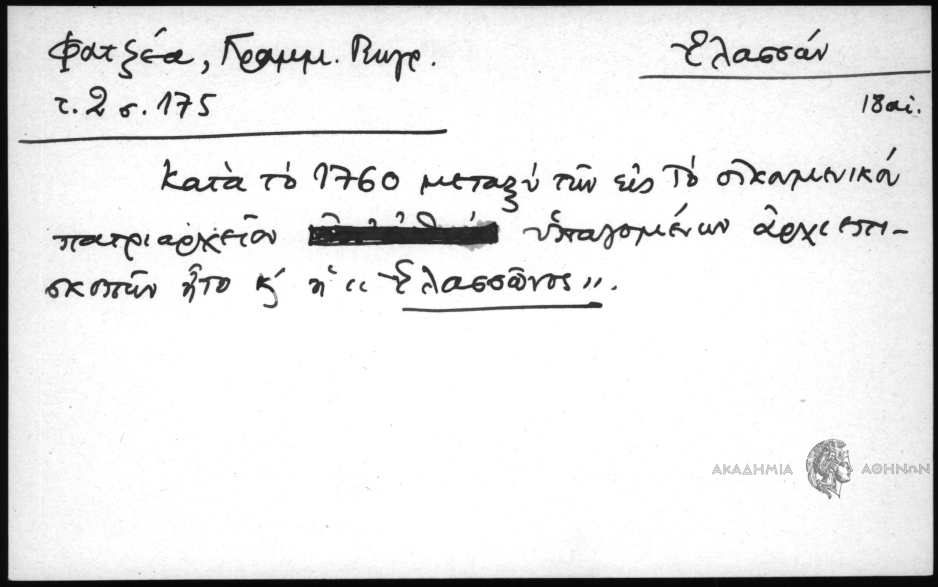 Φατζέα, Γραμμ. Βιγρ.
Ἐλασσών
τ. 2 σ. 175
18 αἰ.
Κατὰ τὸ 1760 μεταξὺ τῶν εἰς τὸ οἰκουμενικὸν
πατριαρχεῖον ὑπαγομένων ἀρχιεπι-
σκοπῶν ἦτο κ' ἡ «Ἐλασσῶνος».
ΑΚΑΔΗΜΙΑ ΑΘΗΝΩΝ